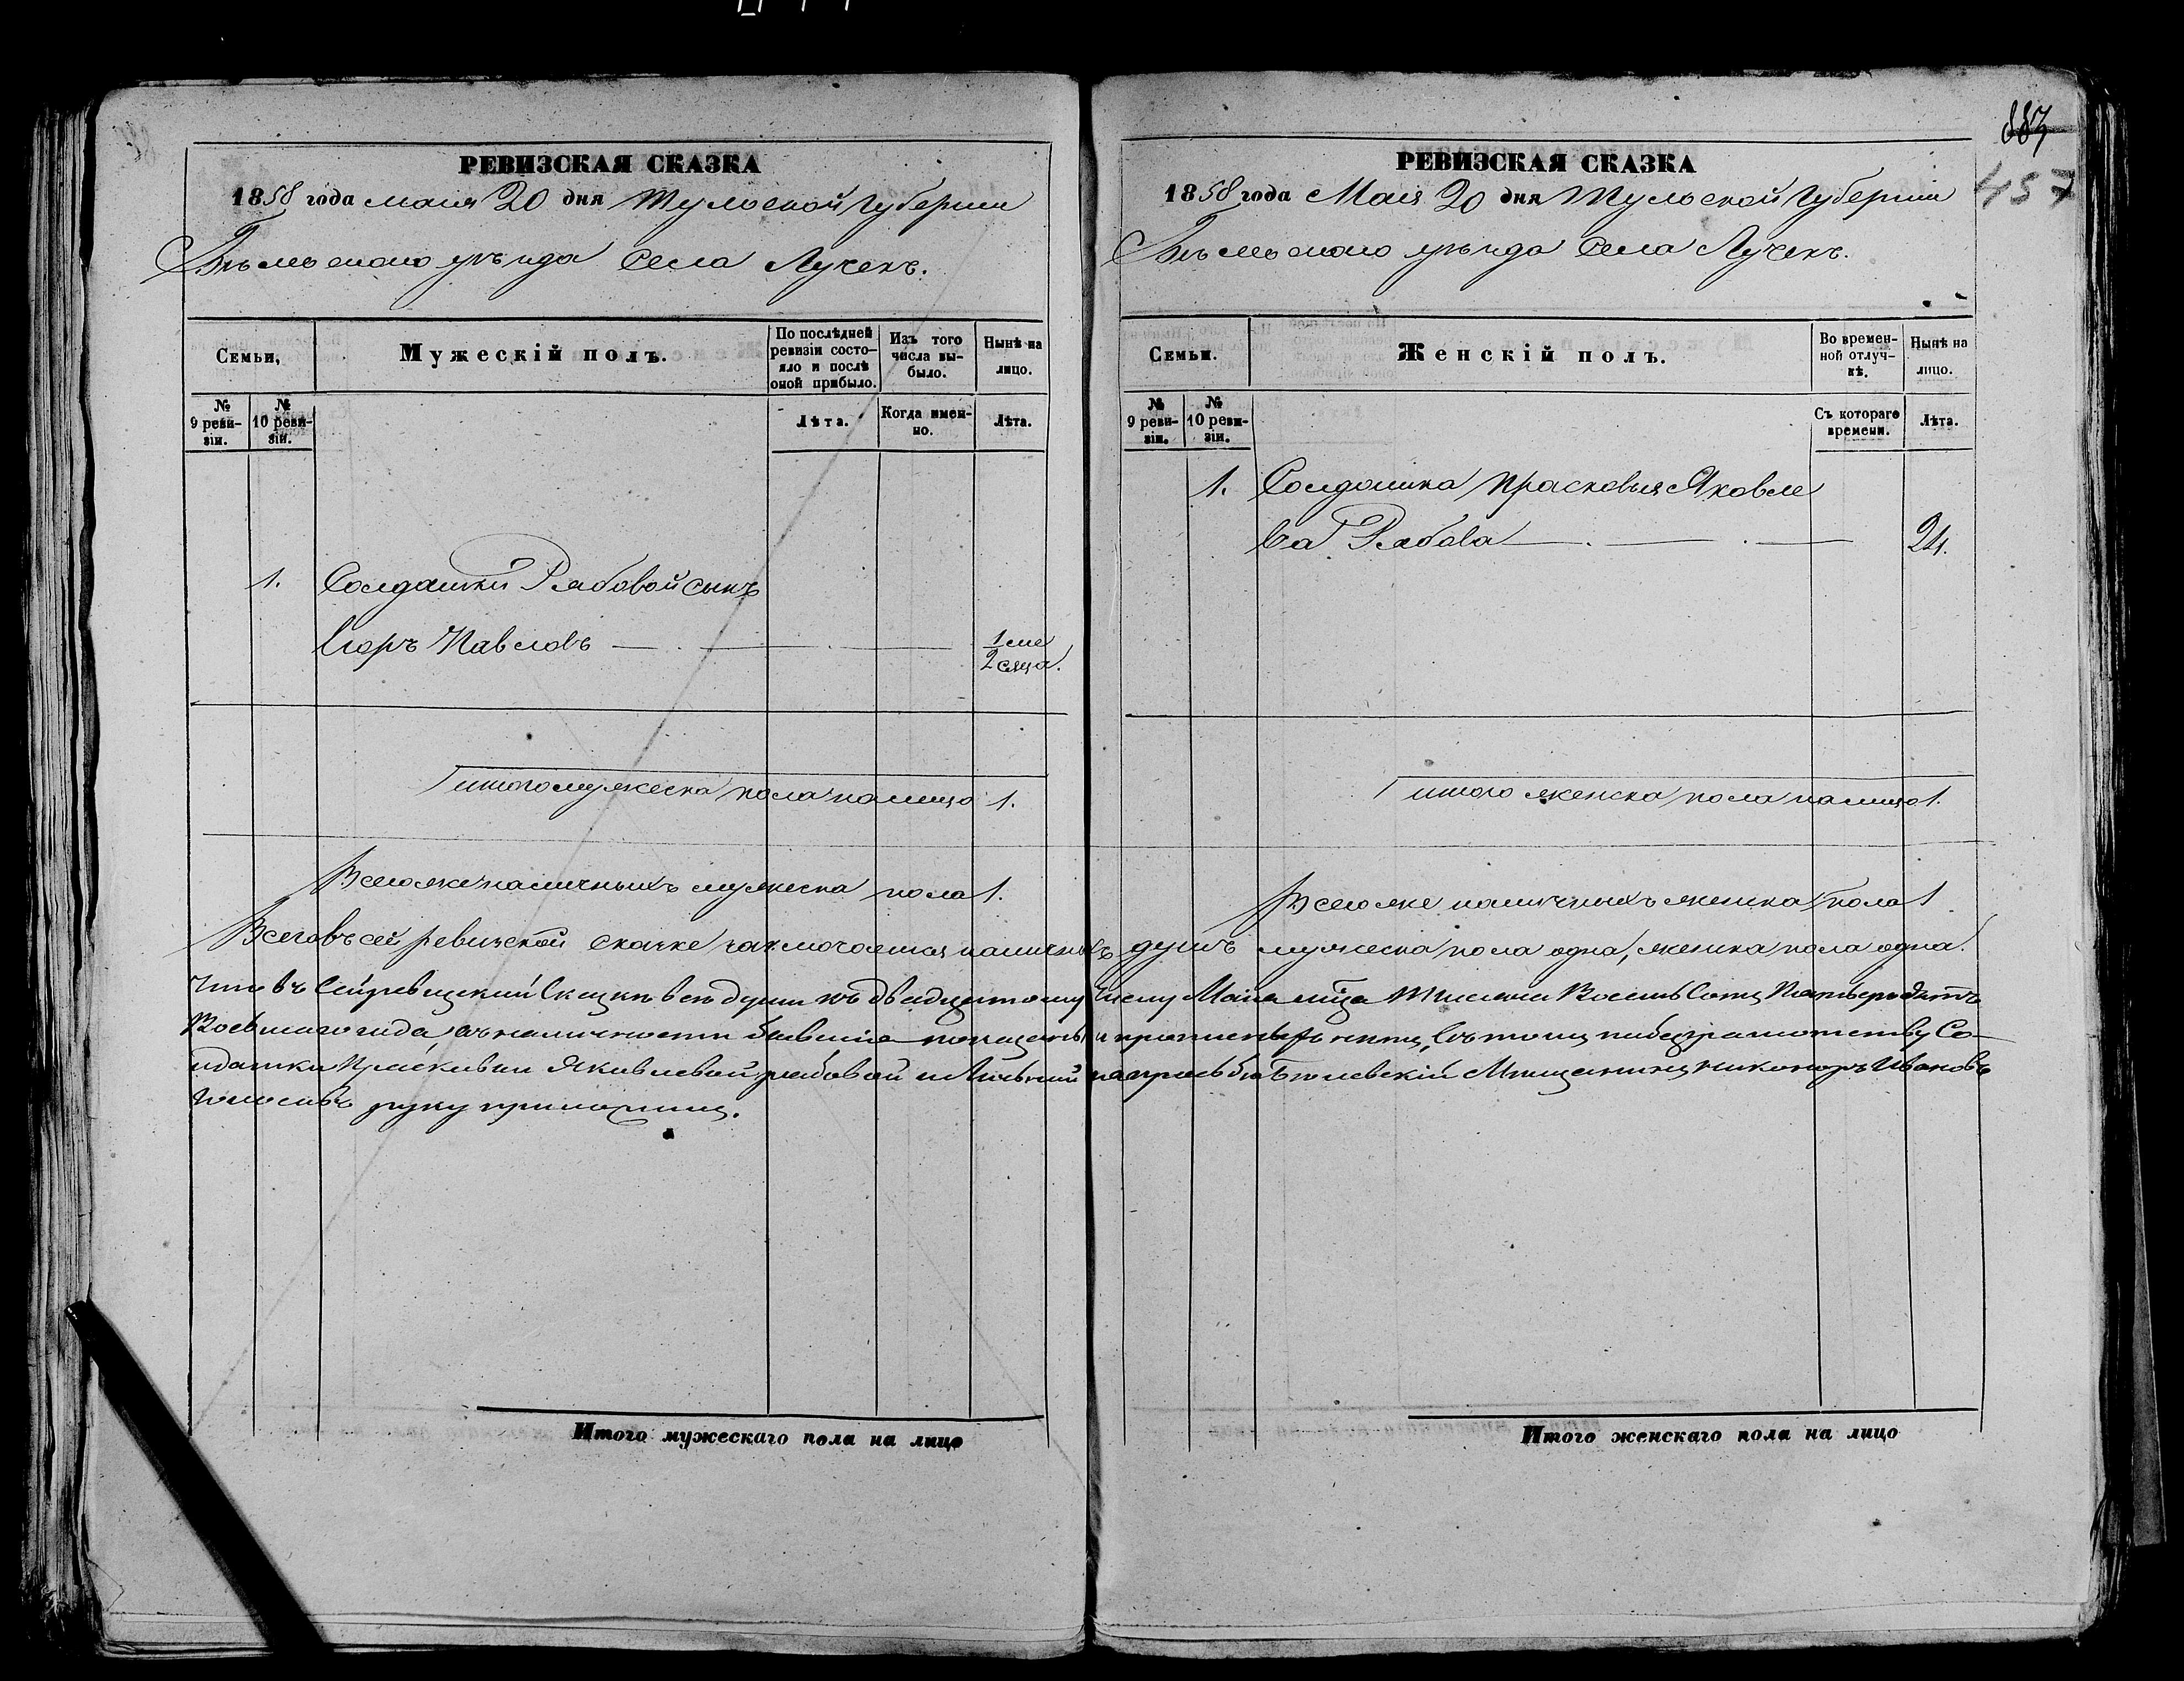 РЕВИЗСКАЯ СКАЗКА
1858 года маия 20 дня Тульской Губернии
Бѣлевскаго уѣзда Села Лучекъ.
Семьи,
Мужескій полъ.
По послѣдней ревизіи состояло и послѣ оной прибыло.
Изъ того числа выбыло.
Нынѣ на лицо.
№ 9 ревизіи.
№ 10 ревизіи.
Лѣта.
Когда именно.
Лѣта.
1. Солдатки Рябовой сынъ
Егоръ Павловъ 1/2 месяца.
итого мужеска пола налицо 1.
Всего же наличныхъ мужеска пола 1.
РЕВИЗСКАЯ СКАЗКА
1858 года Маія 20 дня Тульской Губерніи
Бѣлевскаго уѣзда Села Лучекъ.
883
457
Семьи.
Женскій полъ.
Во временной отлучкѣ.
Нынѣ на лицо.
№ 9 ревизіи.
№ 10 ревизіи.
Съ котораго времени.
Лѣта.
1. Солдатка Прасковья Яковле
ва Рябова 24.
итого женска пола налицо 1.
Всего же наличныхъ женска пола 1
Всего въ сей ревизской сказке заключается наличныхъ душъ мужеска пола одна, женска пола одна.
Что въ Сей ревизкий Скаски все души къ двадцатому Числу Маия мца Тысяча Восемь Сотъ Пятьдесятъ
Восьмаго года, въ наличности бывшіе показаны и прописныхъ нетъ, Въ томъ по безграмотству Со-
лдатки Прасковьи Яковлевой рябовой и личной на прозьбы Бѣлевскій Мищанинъ Никоноръ Ивановъ
руку приложилъ.
Итого мужескаго пола на лицо
Итого женскаго пола на лицо